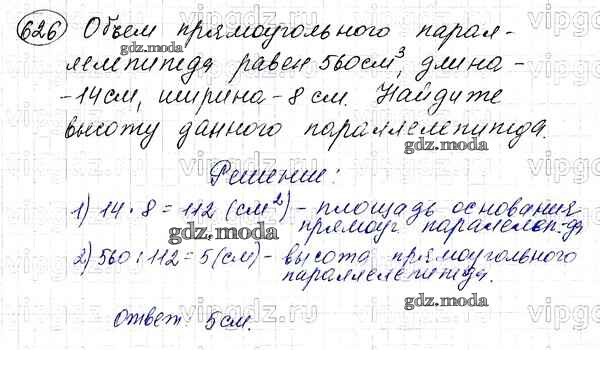 626 Объем прямоугольного парал-
лелепипеда равен 560см³, длина-
-14см, ширина-8 см. Найдите
высоту данного параллелепипеда.
Решение:
1) 14·8=112 (см²)-площадь основания
прямоуг параллелеп-да
2) 560:112=5(см)- высота прямоугольного
параллелепипеда.
Ответ: 5см.